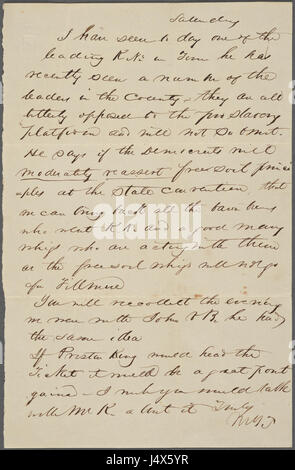 Saturday
I have seen to day one of the
leading K Ns in Town he has
recently seen a number of the
leaders in the County - they are all
utterly opposed to the pro slavery
platform and will not submit.
He says if the Democrats will
moderately reassert freesoil princi
ples at the State convention, that
we can bring back all the barn burners
who went K. N. and a good many
whigs who are acting with them
as the freesoil whigs will not go
for Fillmore
You will recollect the evening
we were with John V B, he had
the same idea
If Preston King would head the
Ticket it would be a great point
gained - I wish you would talk
with Mr K about it Truly
alamy
IMAGE ID: J4X5YR
www.alamy.com